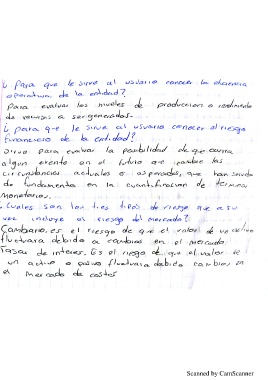 ¿ Para que le sirve al usuario conocer la eficiencia
operativa de la entidad?
Para evaluar los niveles de produccion o rendimiento
de recursos a ser generados.
¿ para que le sirve al usuario conocer el riesgo
financiero de la entidad?
Sirve para evaluar la posibilidad de que ocurra
algun evento en el futuro que cambie las
circunstancias actuales o esperadas, que han servido
de fundamento en la cuantificacion de terminos
monetarios.
Cuales son los tres tipos de riesgo que a su
vez incluye el riesgo del mercado?
Cambiario. es el riesgo de que el valor de un activo
fluctuara debido a cambios en el mercado.
Tasas de interes. Es el riesgo de que el valor de
un activo o pasivo fluctuara debido cambios en
el mercado de costos
Scanned by CamScanner